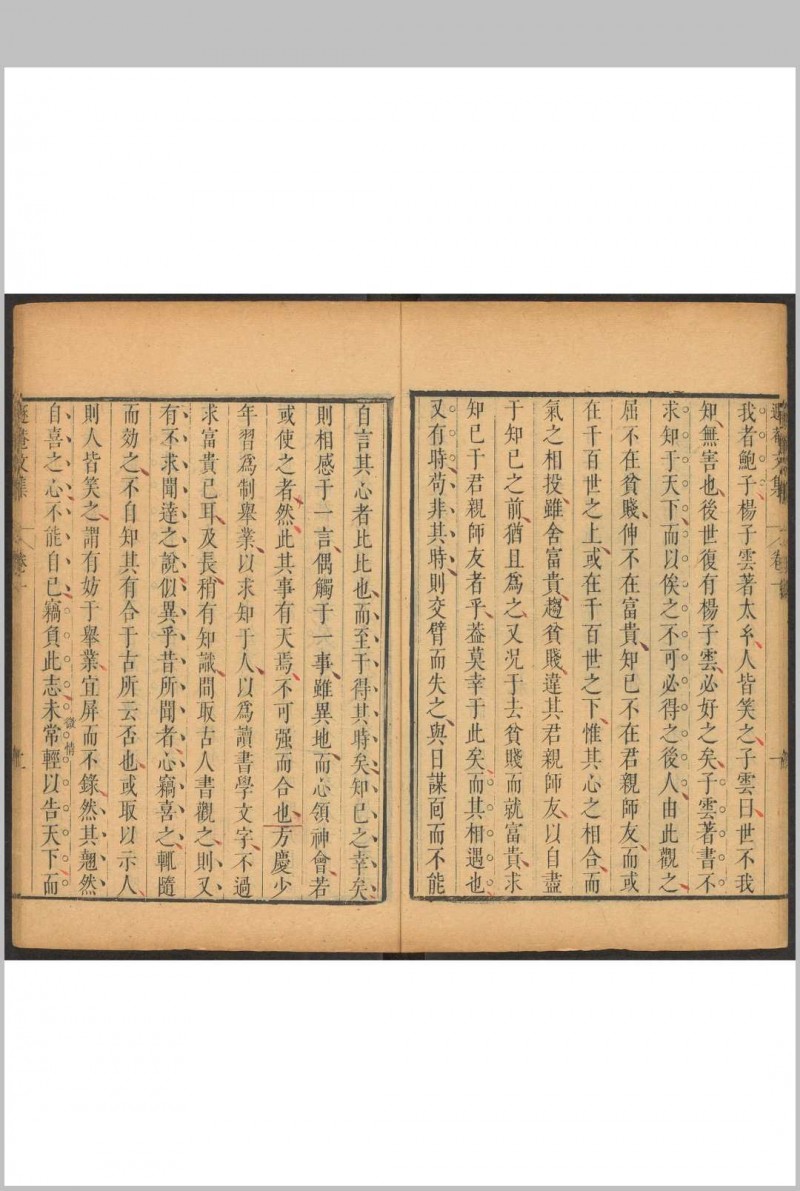 我者鮑子楊子雲著太𤣥人皆笑之子雲曰世不我
知無害也後世復有楊子雲必好之矣子雲著書不
求知于天下而以俟之不可必得之後人由此觀之
屈不在貧賤伸不在富貴知己不在君親師友而或
在千百世之上或在千百世之下惟其心之相合而
氣之相投雖舍富貴趨貧賤違其君親師友以自盡
于知己之前猶且為之又况于去貧賤而就富貴求
知己于君親師友者乎葢莫幸于此矣而其相遇也
又有時苟非其時則交臂而失之與日謀面而不能
自言其心者比比也而至于得其時矣知己之幸矣
則相感于一言偶觸于一事雖異地而心領神會若
或使之者然此其事有天焉不可强而合也方慶少
年習爲制舉業以求知于人以爲讀書學文字不過
求富貴已耳及長稍有知識間取古人書觀之則又
有不求聞達之說似異乎昔所聞者心竊喜之輒隨
而効之不自知其有合于古所云否也或取以示人
則人皆笑之謂有妨于舉業宜屏而不錄然其翹然
自喜之心不能自已竊負此志未常輕以告天下而
微情
文集
卷十